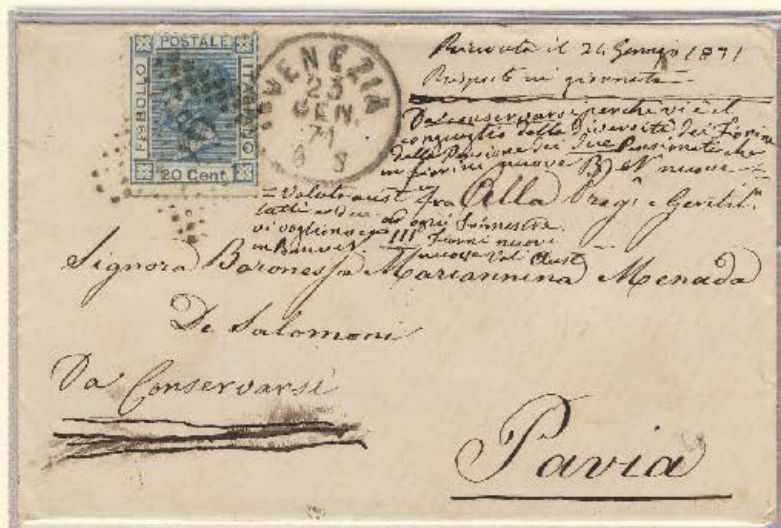 POSTALE
FRABOLLO
ITALIANO
20 Cent.
VENEZIA
23
GEN.
71
Ricevuta il 24 Gennajo 1871
Risposto in giornata
Da conservarsi perche vi è il
conguaglio della diversità dei Fiorini
della Pensione dei due Pensionati che
in fiorini nuove
= Valuta aust
ad ogni Trimestre
III Fiorini nuovi
nuova Val Aust
Alla Preg. e Gentil.
Signora Baronessa Mariannina Menada
De Salomoni
Da Conservarsi
Pavia